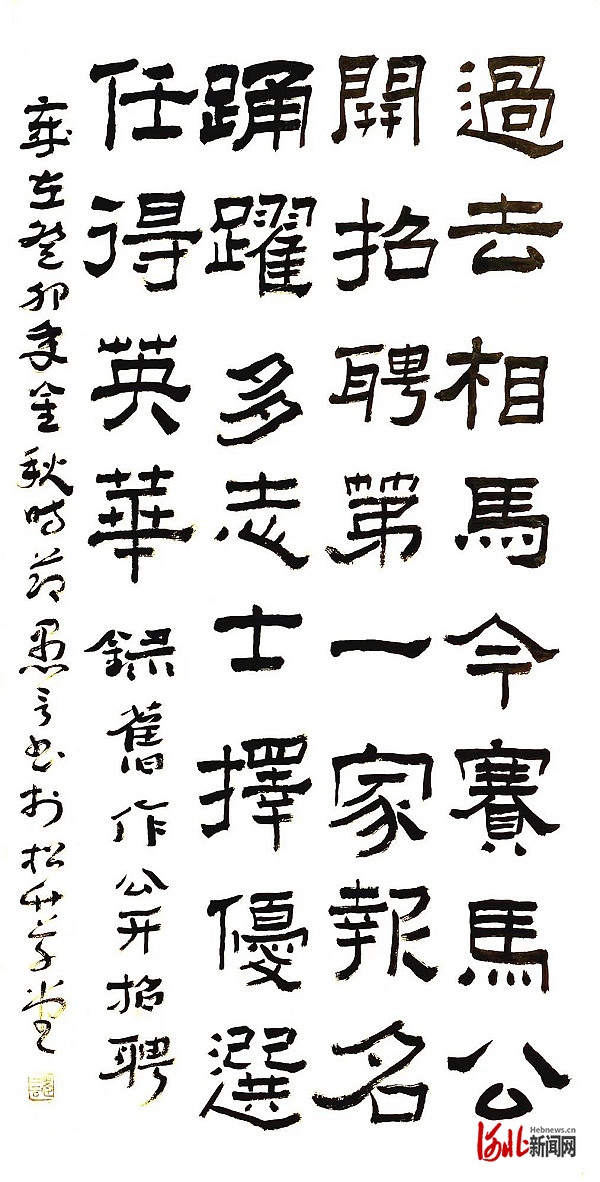 過去相馬今賽馬公
開招聘第一家報名
踊躍多志士擇優選
任得英華 錄舊作公开招聘
歲在癸卯年金秋時节愚言书於松竹草堂
Hebnews.cn
河北新闻网